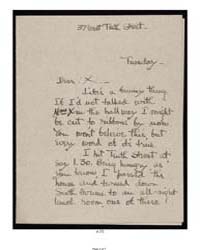 37 East Tenth Street.
Tuesday.
Dear X.
Life's a funny thing
If I'd not talked with
X on the hallway I might
be cut to ribbons by now.
You wont believe this but
every word of it's true.
I hit Tenth Street at
say 1.30. Being hungry as
you know I passed the
house and turned down
Sixth Avenue to an all-night
lunch room one of these